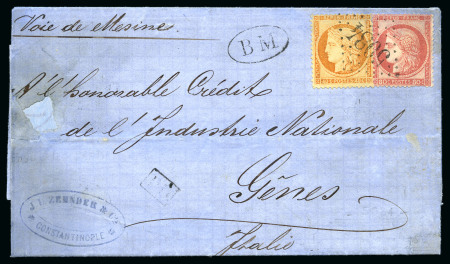 Voie de Messine
B M
5081
A l'honorable Crédit
de l'Industrie Nationale
Gênes
Italie
CONSTANTINOPLE